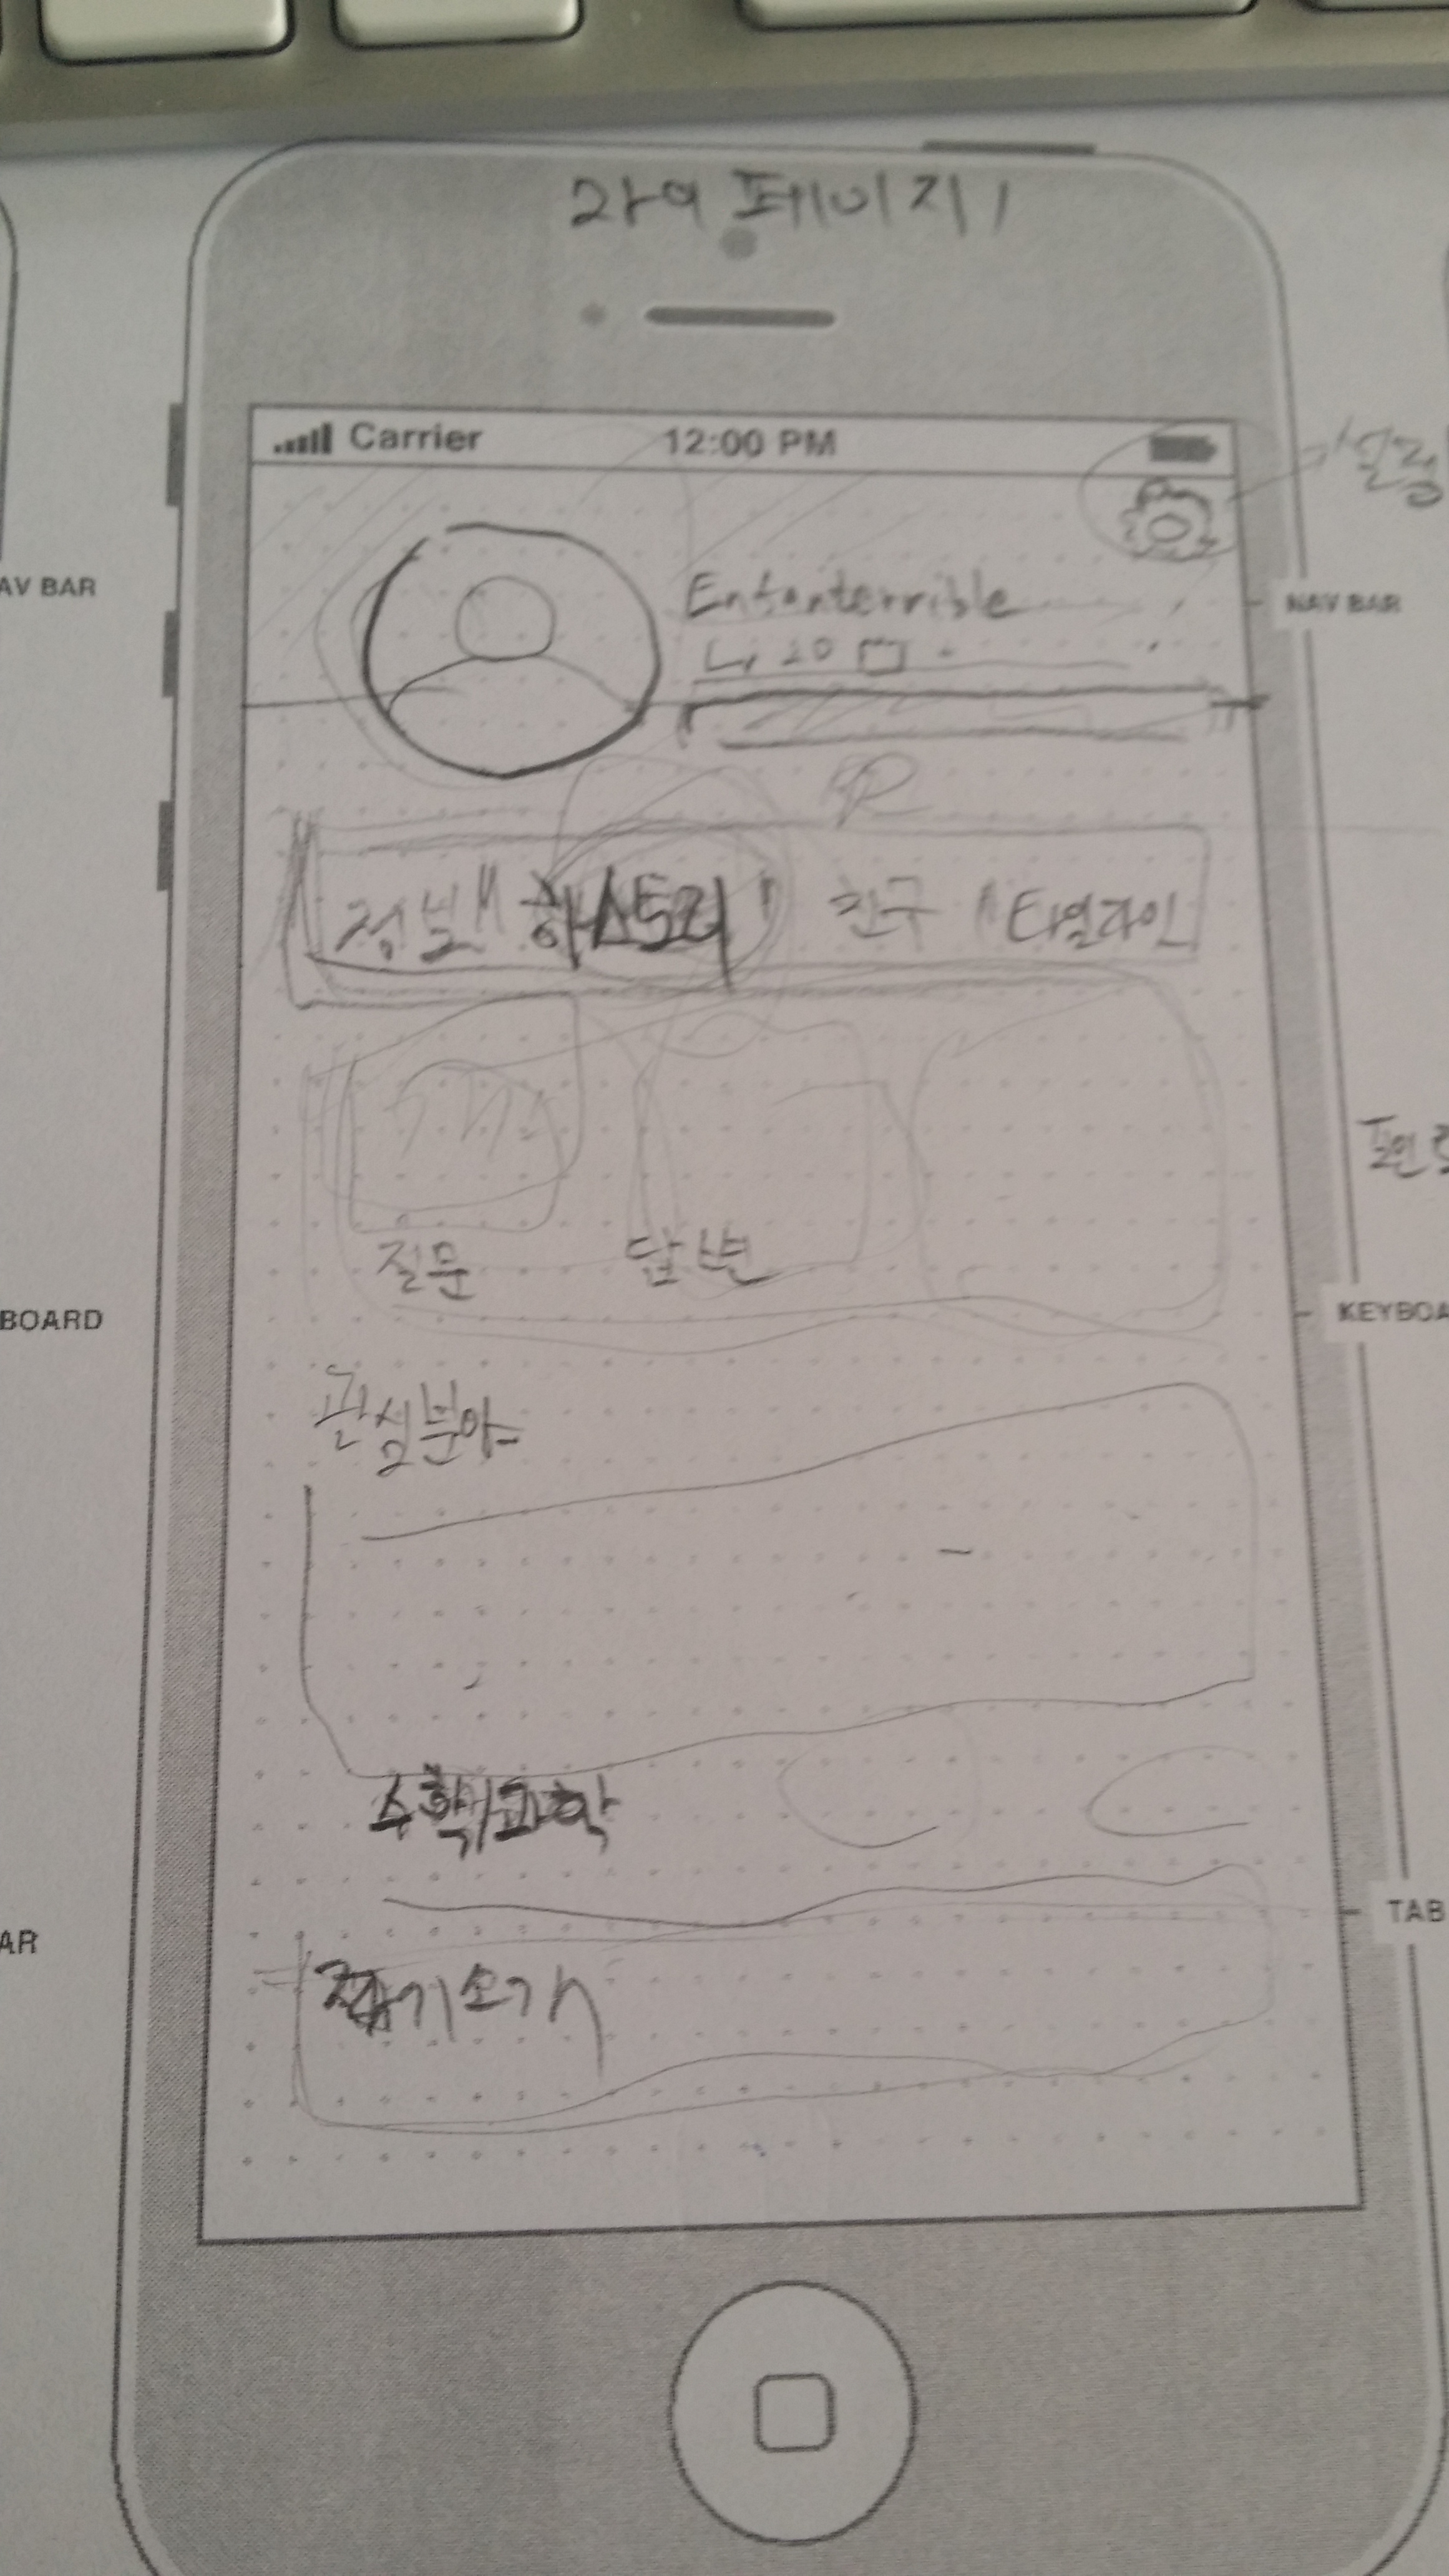 마이페이지 1
Carrier 12:00 PM
설정
AV BAR
Enfanterrible
NAV BAR
L, 20
정보 히스토리 친구 타임라인
질문 답변
BOARD
KEYBOA
관심분야
수학/과학
TAB
AR
자기소개